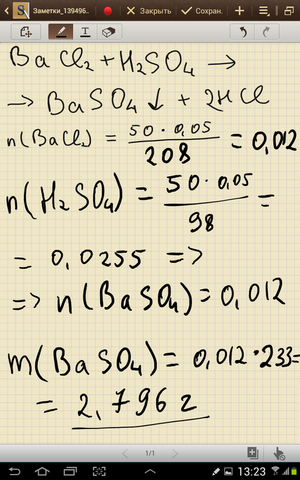 Заметки_139496...
Закрыть
Сохран.
BaCl₂ + H₂SO₄ →
→ BaSO₄↓ + 2HCl
n(BaCl₂) = 50 · 0,05 / 208 = 0,012
n(H₂SO₄) = 50 · 0,05 / 98 =
= 0,0255 =>
=> n(BaSO₄) = 0,012
m(BaSO₄) = 0,012 · 233 =
= 2,796 г
1/1
13:23